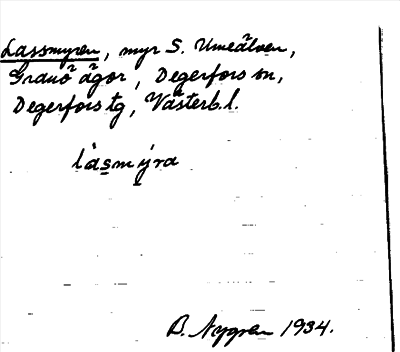 Lassmyren, myr S. Umeälven,
Granö ägor, Degerfors sn,
Degerfors tg, Västerb. l.
låsmy̆ra
B. Nygren 1934.